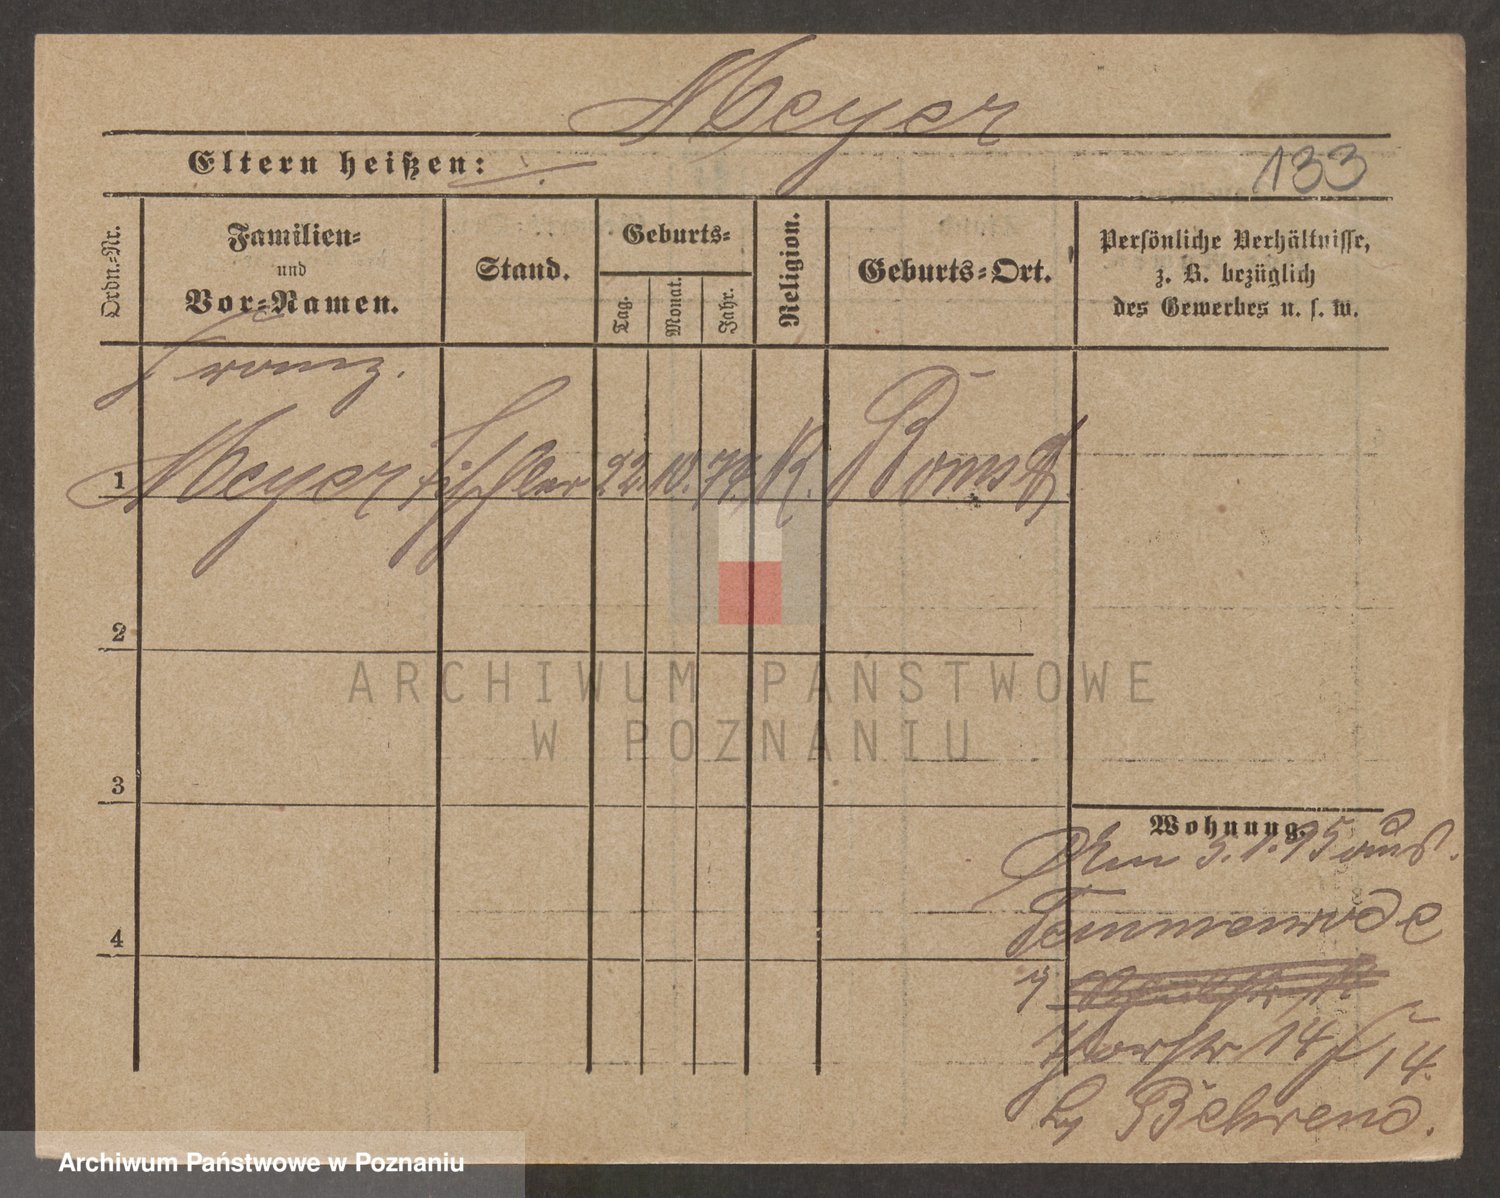 Meyer
Eltern heißen:
133
Ordn.-Nr.
Familien- und Vor-Namen.
Stand.
Geburts-
Tag.
Monat.
Jahr.
Religion.
Geburts-Ort.
Persönliche Verhältnisse,
z. B. bezüglich
des Gewerbes u. s. w.
Franz.
1 Meyer Tischler 22. 10. 74. K. Bomst
2
3
4
Wohnung.
Am 3.1.95 aus.
14
14.
by Behrend.
ARCHIWUM PAŃSTWOWE
W POZNANIU
Archiwum Państwowe w Poznaniu